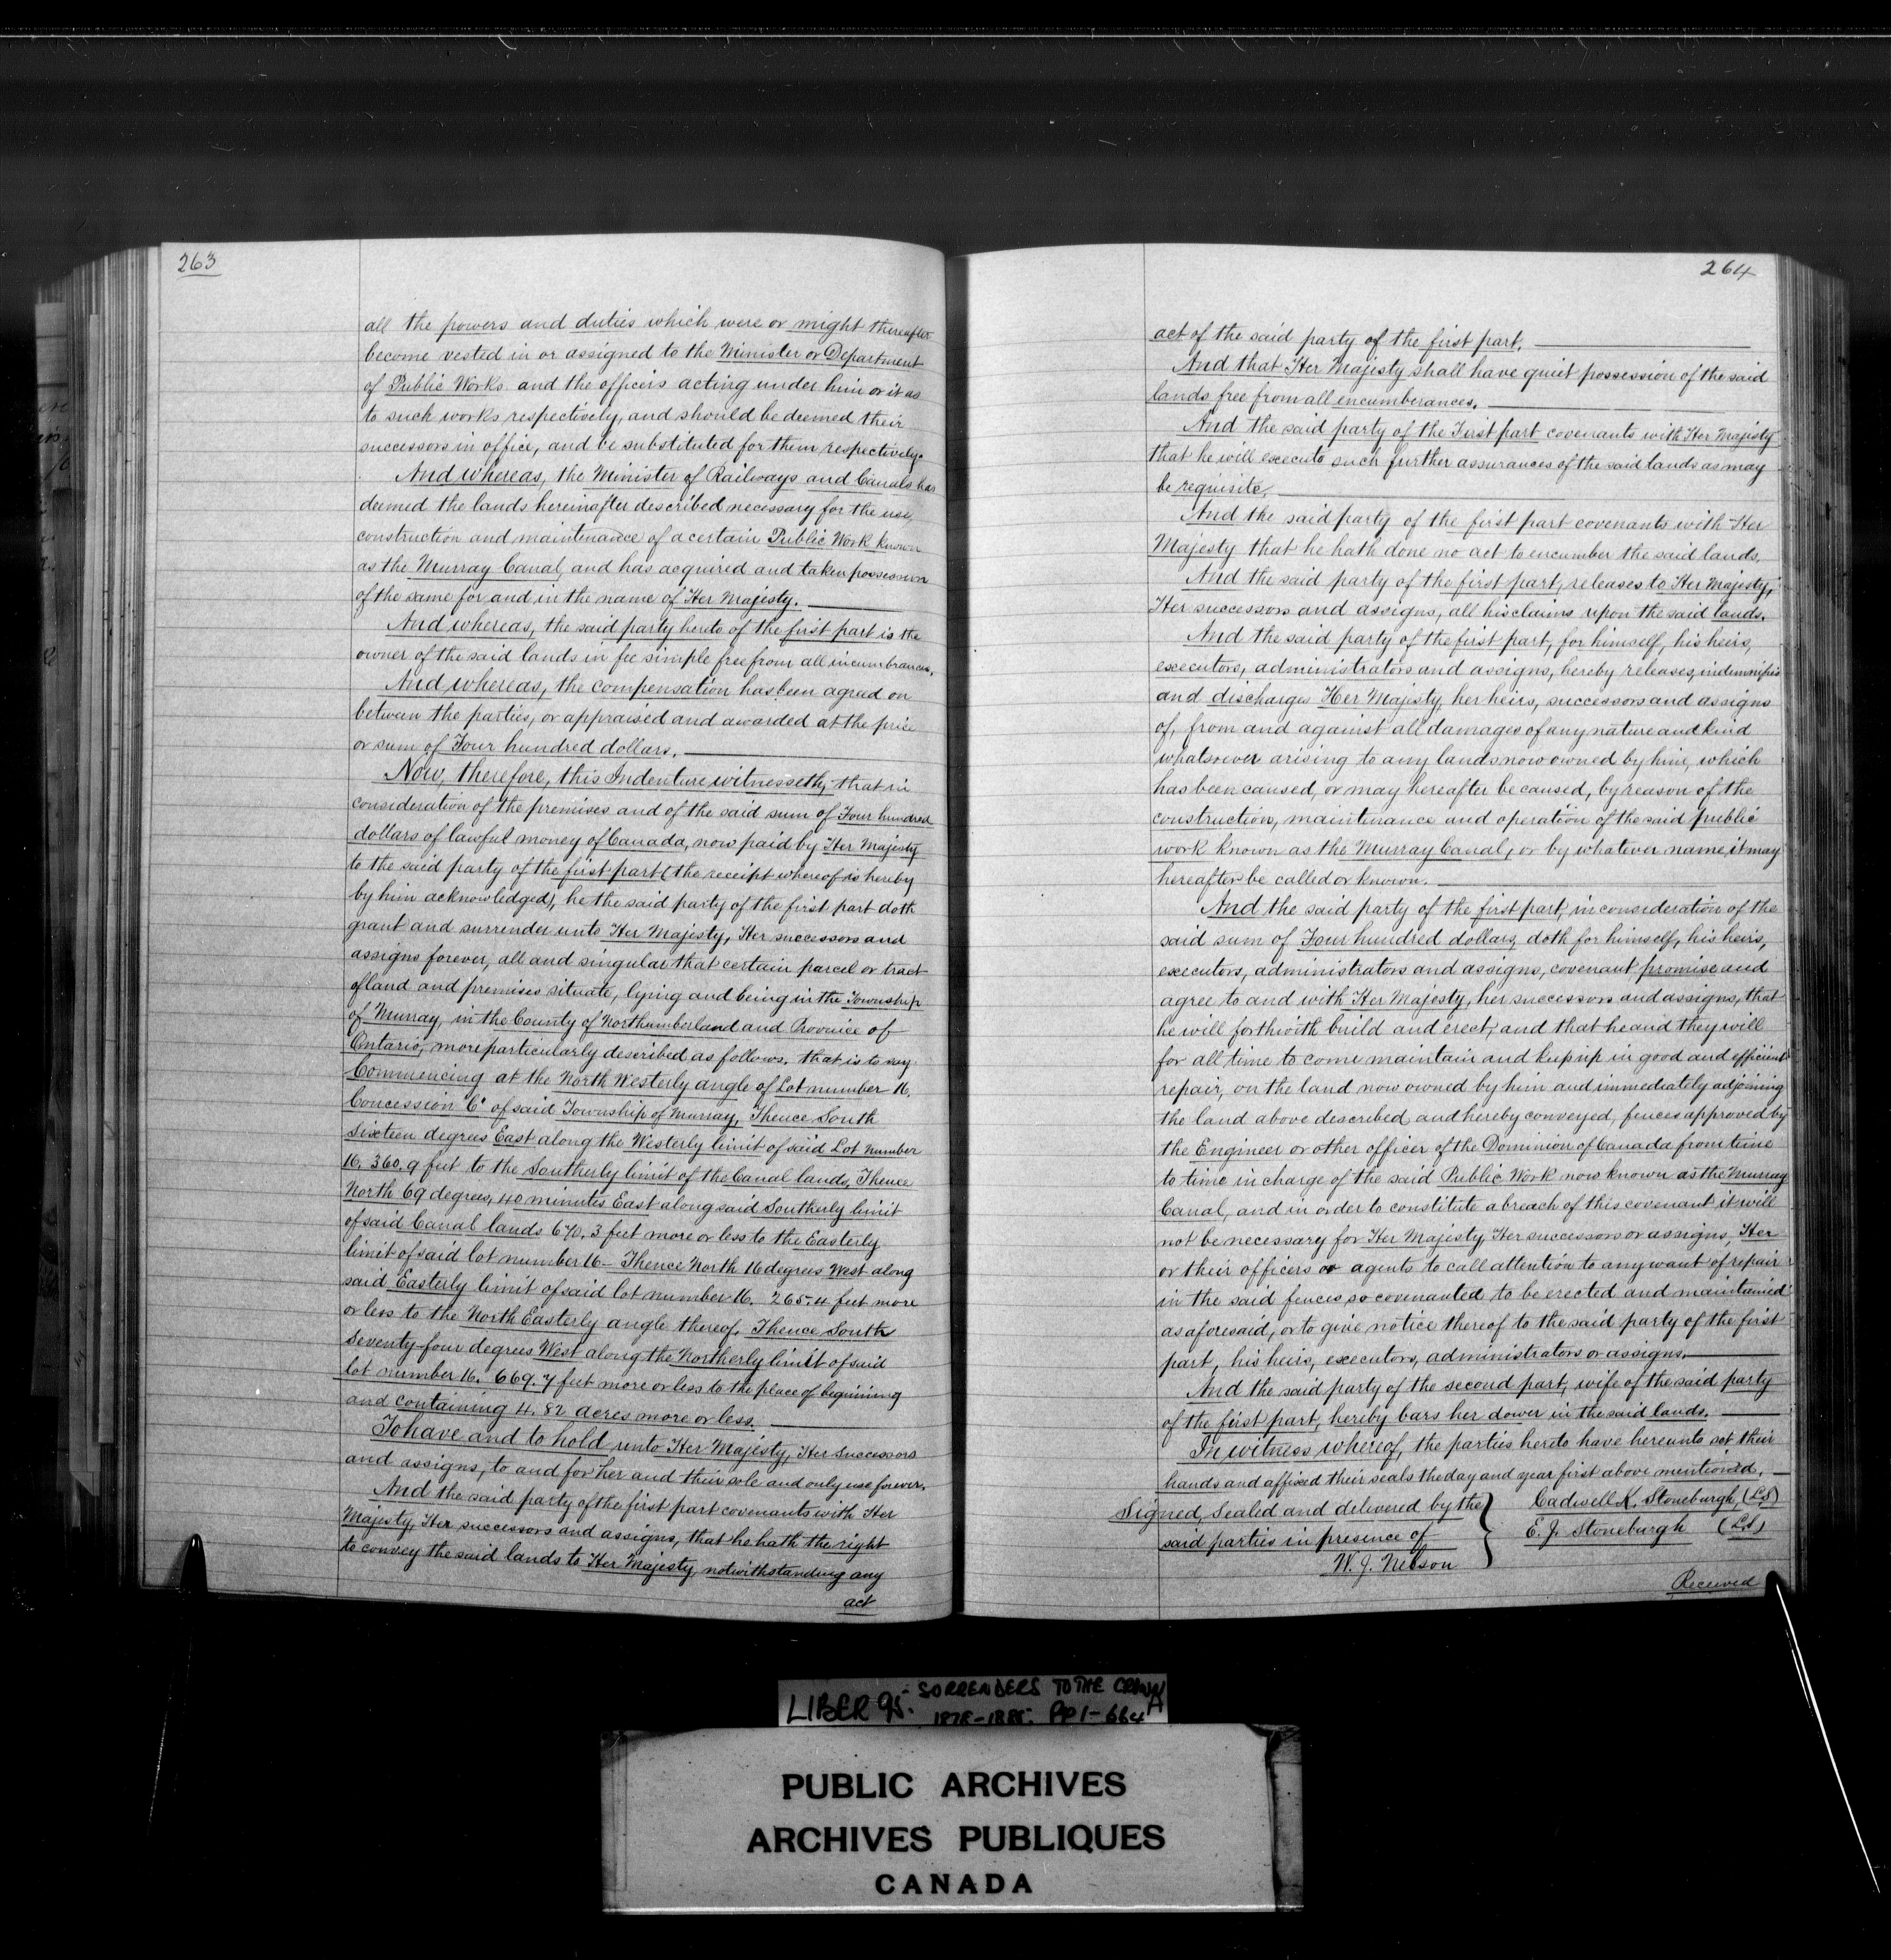 263
all the powers and duties which were or might thereafter
become vested in or assigned to the Minister or Department
of Public Works and the officers acting under him or it as
to such works respectively, and should be deemed their
successors in office, and be substituted for them respectively.
And whereas, the Minister of Railways and Canals has
deemed the lands hereinafter described necessary for the use,
construction and maintenance of a certain Public Work known
as the Murray Canal, and has acquired and taken possession
of the same for and in the name of Her Majesty.
And whereas, the said party hereto of the first part is the
owner of the said lands in fee simple free from all incumbrances.
And whereas, the compensation has been agreed on
between the parties, or appraised and awarded at the price
or sum of Four hundred dollars.
Now, therefore, this Indenture witnesseth, that in
consideration of the premises and of the said sum of Four hundred
dollars of lawful money of Canada, now paid by Her Majesty
to the said party of the first part (the receipt whereof is hereby
by him acknowledged), he the said party of the first part doth
grant and surrender unto Her Majesty, Her successors and
assigns forever, all and singular that certain parcel or tract
of land and premises situate, lying and being in the Township
of Murray, in the County of Northumberland and Province of
Ontario, more particularly described as follows, that is to say:
Commencing at the North Westerly angle of Lot number 16,
Concession "C" of said Township of Murray, Thence South
Sixteen degrees East along the Westerly limit of said Lot Number
16. 360.9 feet to the Southerly limit of the Canal lands, Thence
North 69 degrees, 40 minutes East along said Southerly limit
of said Canal lands 670.3 feet more or less to the Easterly
limit of said lot number 16 – Thence North 16 degrees West along
said Easterly limit of said lot number 16. 265.4 feet more
or less to the North Easterly angle thereof. Thence South
Seventy-four degrees West along the Northerly limit of said
lot number 16. 669.7 feet more or less to the place of beginning
and containing 4.82 acres more or less.
To have and to hold unto Her Majesty, Her Successors
and assigns, to and for her and their sole and only use forever.
And the said party of the first part covenants with Her
Majesty, Her successors and assigns, that he hath the right
to convey the said lands to Her Majesty, notwithstanding any
act
264
act of the said party of the first part.
And that Her Majesty shall have quiet possession of the said
lands free from all encumberances.
And the said party of the First part covenants with Her Majesty
that he will execute such further assurances of the said lands as may
be requisite.
And the said party of the first part covenants with Her
Majesty that he hath done no act to encumber the said lands.
And the said party of the first part, releases to Her Majesty,
Her successors and assigns, all his claims upon the said lands.
And the said party of the first part, for himself, his heirs,
executors, administrators and assigns, hereby releases, indemnifies
and discharges Her Majesty, her heirs, successors and assigns
of, from and against all damages of any nature and kind
whatsoever arising to any lands now owned by him, which
has been caused, or may hereafter be caused, by reason of the
construction, maintenance and operation of the said public
work known as the Murray Canal, or by whatever name it may
hereafter be called or known.
And the said party of the first part, in consideration of the
said sum of Four hundred dollars, doth for himself, his heirs,
executors, administrators and assigns, covenant promise and
agree to and with Her Majesty, her successors and assigns, that
he will forthwith build and erect, and that he and they will
for all time to come maintain and keep up in good and efficient
repair, on the land now owned by him and immediately adjoining
the land above described and hereby conveyed, fences approved by
the Engineer or other officer of the Dominion of Canada from time
to time in charge of the said Public Work now known as the Murray
Canal, and in order to constitute a breach of this covenant it will
not be necessary for Her Majesty, Her successors or assigns, Her
or their officers or agents to call attention to any want of repair
in the said fences so covenanted to be erected and maintained
as aforesaid, or to give notice thereof to the said party of the first
part, his heirs, executors, administrators or assigns.
And the said party of the second part, wife of the said party
of the first part, hereby bars her dower in the said lands.
In witness whereof, the parties hereto have hereunto set their
hands and affixed their seals the day and year first above mentioned.
Signed, Sealed and delivered by the Cadwell K. Stoneburgh (LS)
said parties in presence of E. J. Stoneburgh (LS)
W. J. Nelson
Received
LIBER 95. SURRENDERS TO THE CROWN
1878-1885. PP 1-664 A
PUBLIC ARCHIVES
ARCHIVES PUBLIQUES
CANADA